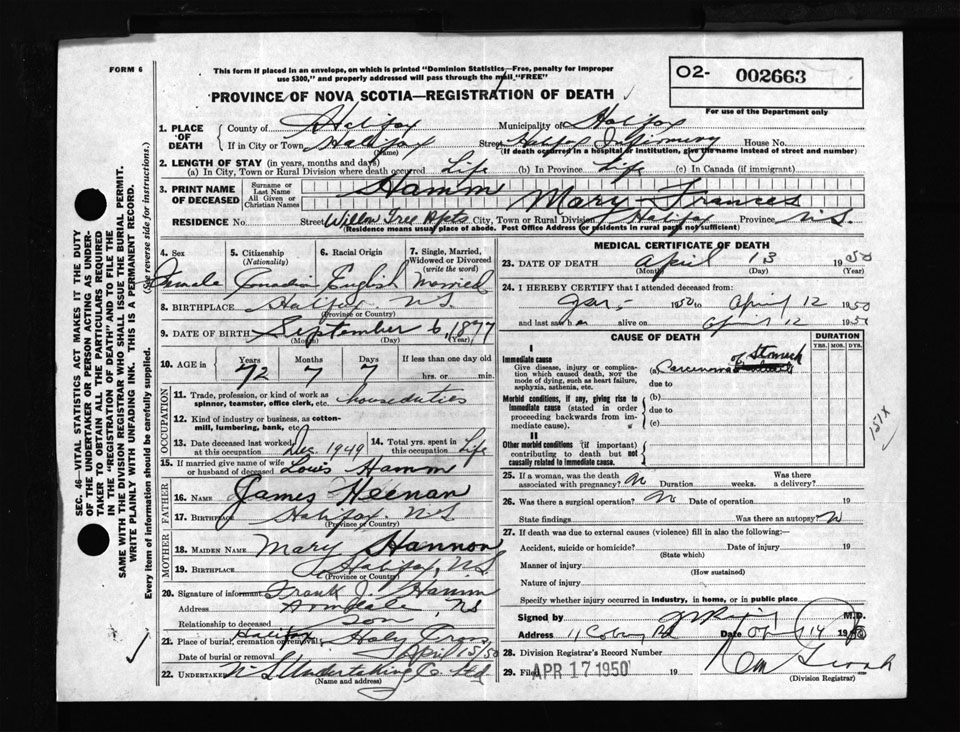 FORM 6
This form if placed in an envelope, on which is printed "Dominion Statistics—Free, penalty for improper
use $300," and properly addressed will pass through the mail "FREE"
O2- 002663
For use of the Department only
PROVINCE OF NOVA SCOTIA—REGISTRATION OF DEATH
1. PLACE OF DEATH
County of Halifax Municipality of Halifax
If in City or Town Halifax Street Halifax Infirmary House No.
(Name) (If death occurred in a hospital or institution, give the name instead of street and number)
2. LENGTH OF STAY (in years, months and days)
(a) In City, Town or Rural Division where death occurred Life (b) In Province Life (c) In Canada (if immigrant)
3. PRINT NAME OF DECEASED
Surname or Last Name Hamm
All Given or Christian Names Mary Frances
RESIDENCE No. Street Willow Tree Apts City, Town or Rural Division Halifax Province N.S.
(Residence means usual place of abode. Post Office Address for residents in rural parts not sufficient)
4. Sex Female
5. Citizenship (Nationality) Canadian
6. Racial Origin English
7. Single, Married, Widowed or Divorced (write the word) Married
8. BIRTHPLACE Halifax N.S.
(Province or Country)
9. DATE OF BIRTH September 6, 1877
(Month) (Day) (Year)
10. AGE in Years 72 Months 7 Days 7 If less than one day old hrs. or min.
OCCUPATION
11. Trade, profession, or kind of work as spinner, teamster, office clerk, etc. house duties
12. Kind of industry or business, as cotton-mill, lumbering, bank, etc.
13. Date deceased last worked at this occupation Dec. 1949
14. Total yrs. spent in this occupation Life
15. If married give name of wife or husband of deceased Louis Hamm
FATHER
16. NAME James Heenan
17. Birthplace Halifax N.S.
(Province or Country)
MOTHER
18. MAIDEN NAME Mary Hannon
19. BIRTHPLACE Halifax, N.S.
(Province or Country)
20. Signature of informant Frank J. Hamm
Address Armdale NS
Relationship to deceased Son
21. Place of burial, cremation or removal Halifax Holy Cross
Date of burial or removal April 15/50
22. UNDERTAKER N.S. Undertaking Co Ltd
(Name and address)
MEDICAL CERTIFICATE OF DEATH
23. DATE OF DEATH April 13 1950
(Month) (Day) (Year)
24. I HEREBY CERTIFY that I attended deceased from:
Jan. 1950 to April 12 1950
and last saw her alive on April 12 1950
CAUSE OF DEATH
DURATION
YRS. MOS. DYS.
I
Immediate cause
Give disease, injury or complication which caused death, not the mode of dying, such as heart failure, asphyxia, asthenia, etc.
(a) Carcinoma of Stomach
due to
Morbid conditions, if any, giving rise to immediate cause (stated in order proceeding backwards from immediate cause).
(b)
due to
(c)
II
Other morbid conditions (if important) contributing to death but not causally related to immediate cause.
151X
25. If a woman, was the death associated with pregnancy? No Duration weeks. Was there a delivery?
26. Was there a surgical operation? No Date of operation 19
State findings Was there an autopsy? N
27. If death was due to external causes (violence) fill in also the following:—
Accident, suicide or homicide? Date of injury 19
(State which)
Manner of injury
(How sustained)
Nature of injury
Specify whether injury occurred in industry, in home, or in public place
Signed by M.D.
Address 11 Coburg Rd Date April 14 1950
28. Division Registrar's Record Number
29. Filed APR 17 1950 19
(Division Registrar)
SEC. 46—VITAL STATISTICS ACT MAKES IT THE DUTY
OF THE UNDERTAKER OR PERSON ACTING AS UNDER-
TAKER TO OBTAIN ALL THE PARTICULARS REQUIRED
IN THE "REGISTRATION OF DEATH" AND TO FILE THE
SAME WITH THE DIVISION REGISTRAR WHO SHALL ISSUE THE BURIAL PERMIT.
WRITE PLAINLY WITH UNFADING INK. THIS IS A PERMANENT RECORD.
Every item of information should be carefully supplied. (See reverse side for instructions.)